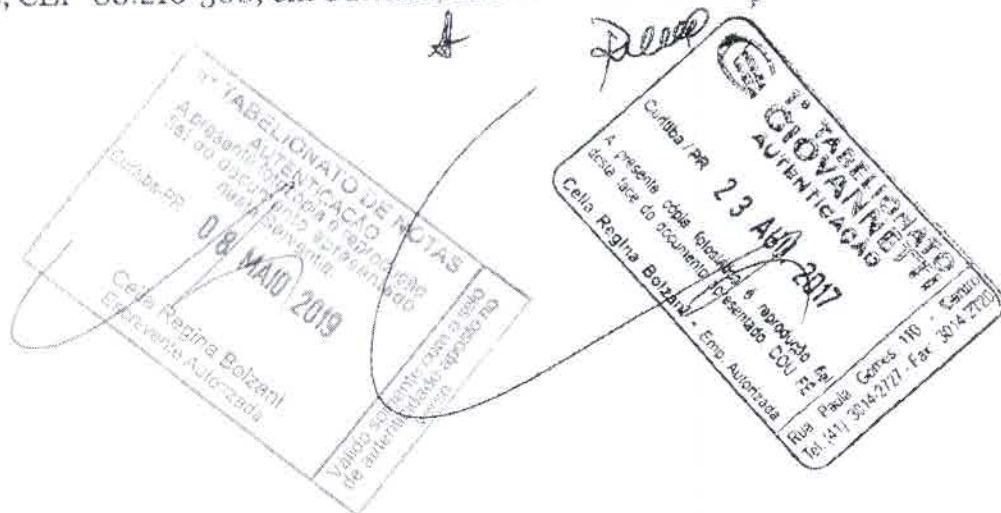 CEP
7º TABELIONATO DE NOTAS
AUTENTICAÇÃO
A presente fotocópia é reprodução
fiel do documento apresentado
nesta Serventia.
Curitiba-PR
08 MAIO 2019
Celia Regina Bolzani
Escrevente Autorizada
Válido somente com o selo
de autenticidade aposto no
verso
7º TABELIONATO
GIOVANNETTI
AUTENTICAÇÃO
Curitiba / PR
23 2017
A presente cópia fotostática é reprodução fiel
desta face do documento apresentado DOU FÉ
Celia Regina Bolzani - Emp. Autorizada
Rua Paula Gomes 110 - Centro
Tel.:(41) 3014-2727 - Fax: 3014-2120